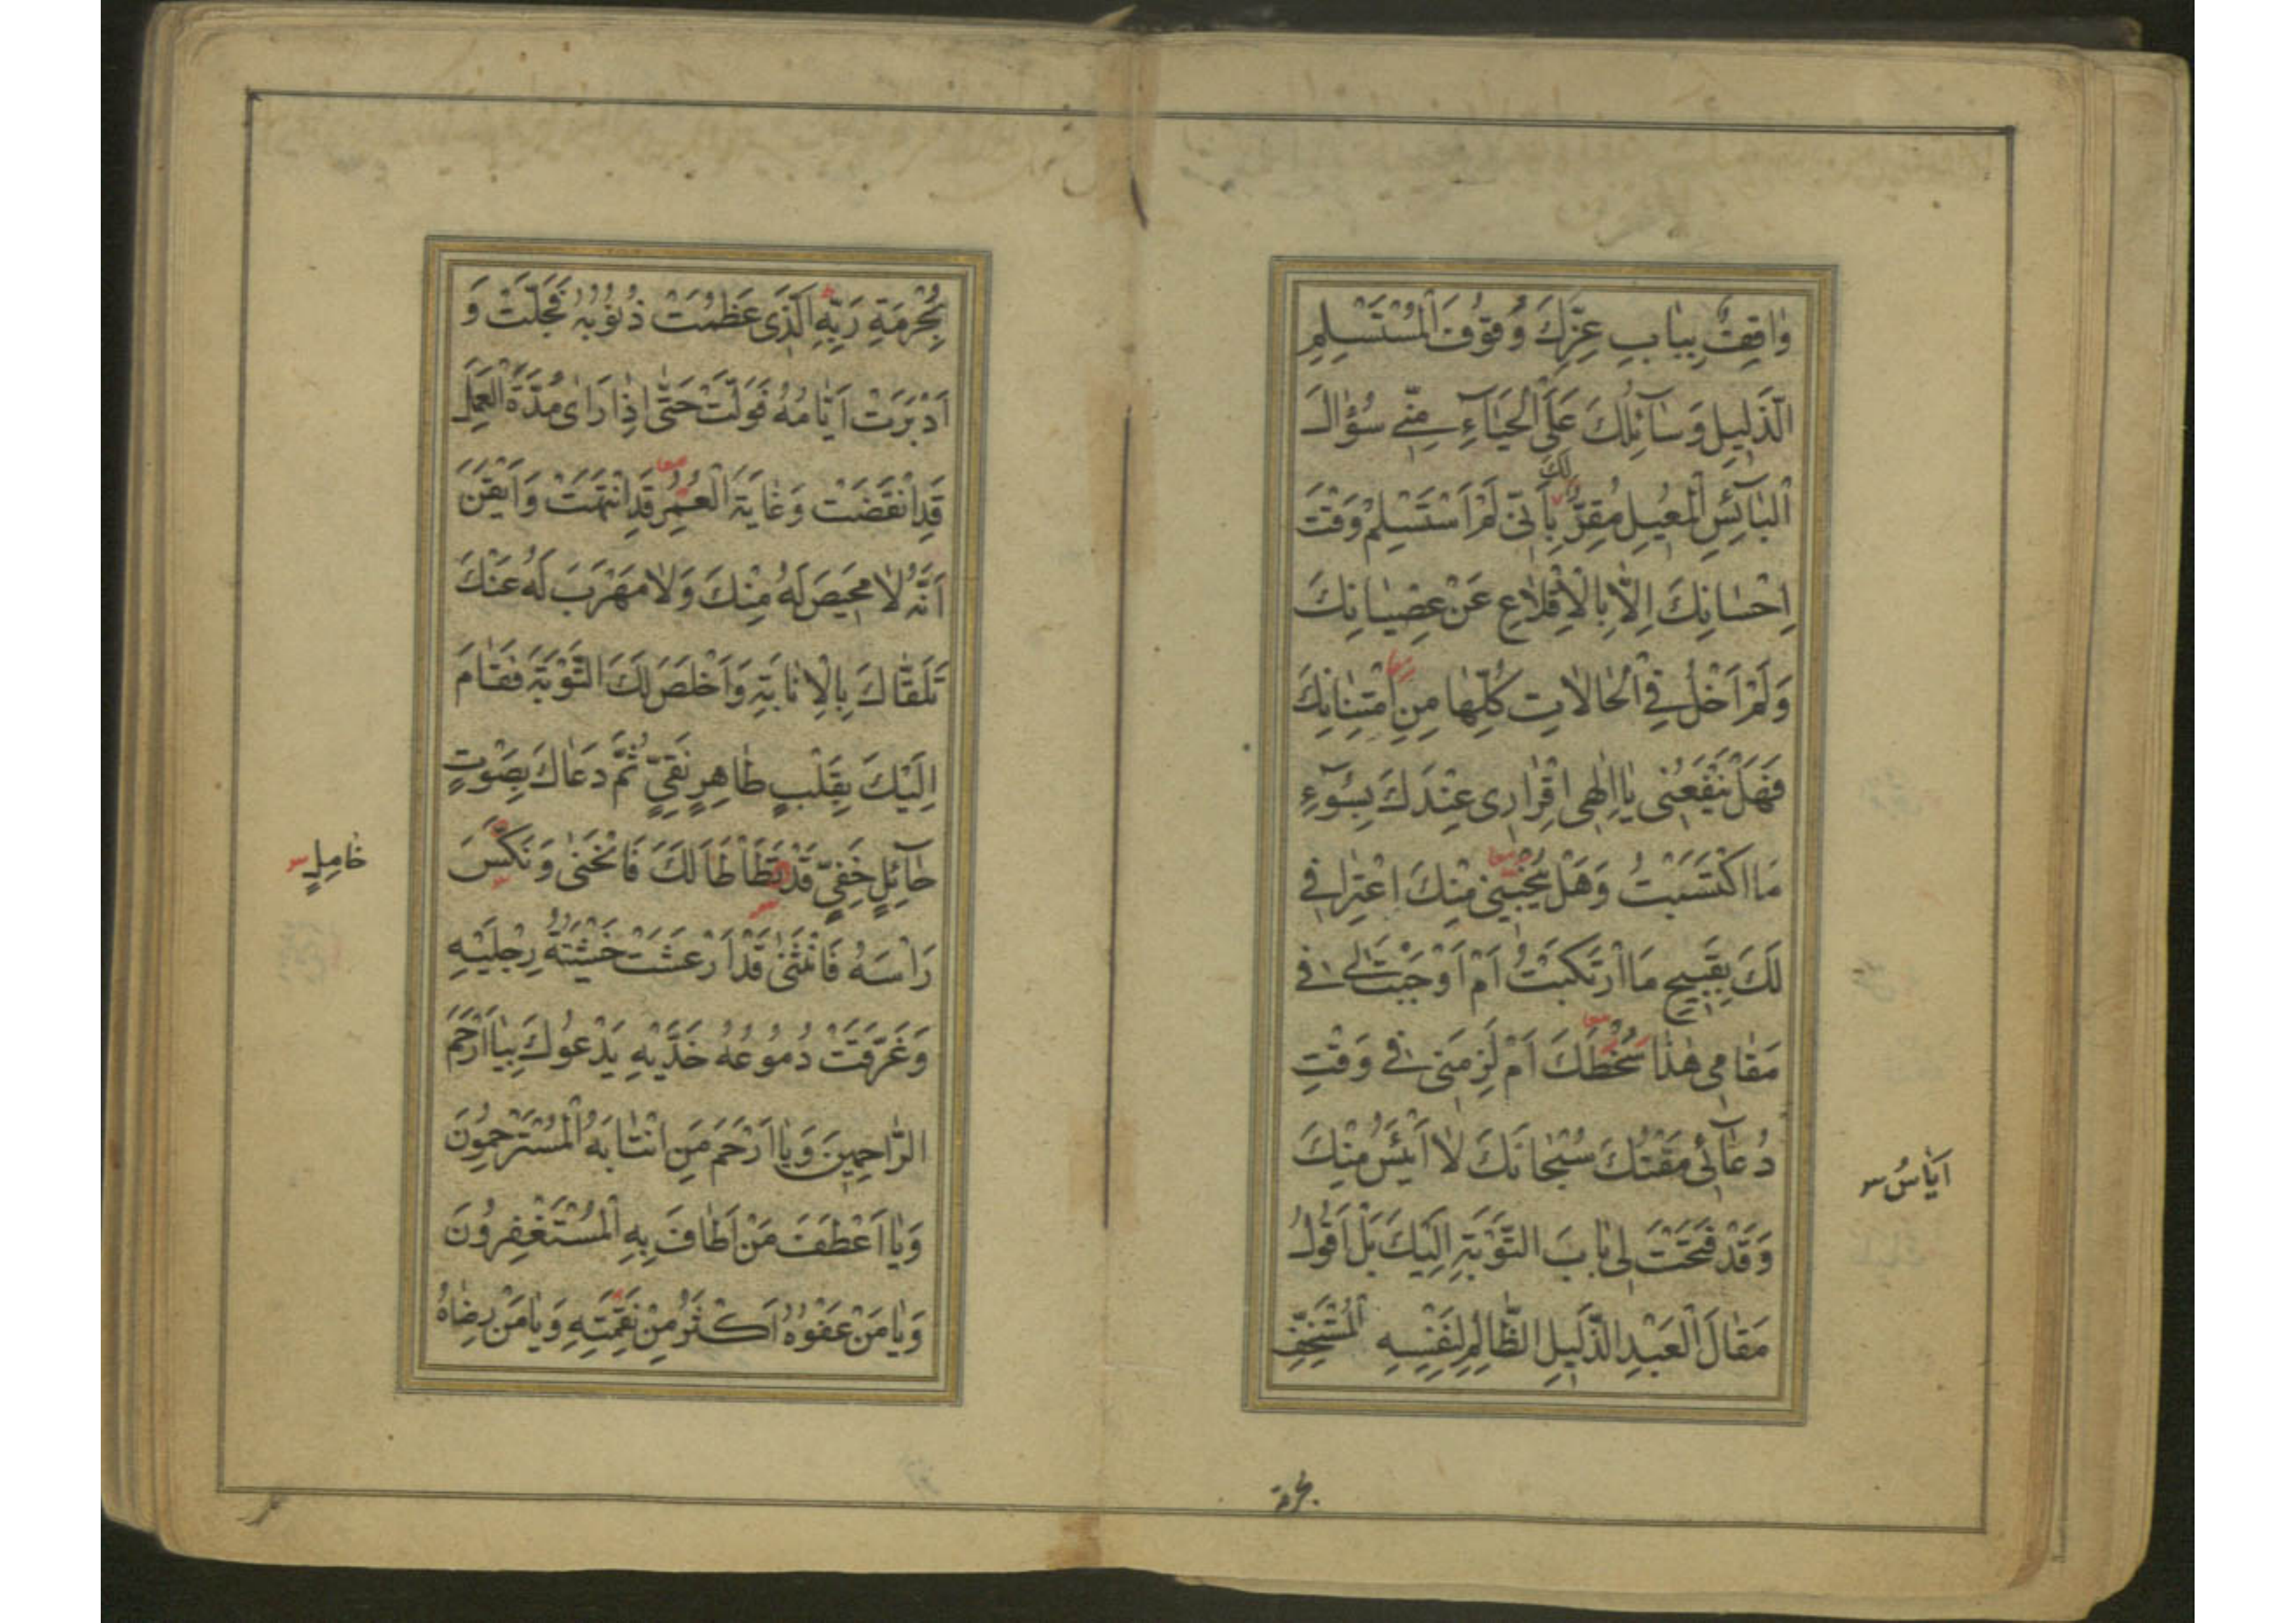 وٰاقِفٌ بِبٰابِ عِزِّكَ وُقُوفَ الْمُسْتَسْلِمِ
الذَّلِيلِ وَسٰآئِلُكَ عَلَى الْحَيٰآءِ مِنّي سُؤٰالَ
الْبٰآئِسِ الْمُعِيلِ مُقِرٌّ لَكَ بِاَنّي لَمْ اَسْتَسْلِمْ وَقْتَ
اِحْسٰانِكَ اِلّٰا بِالْاِقْلٰاعِ عَنْ عِصْيٰانِكَ
وَلَمْ اَخْلُ فِي الْحٰالاٰتِ كُلِّهٰا مِنِ امْتِنٰانِكَ
فَهَلْ يَنْفَعُنى يٰا اِلٰهِى اِقْرٰارِى عِنْدَكَ بِسُوٓءِ
مَا اكْتَسَبْتُ وَهَلْ يُنْجينى مِنْكَ اعْتِرٰافي
لَكَ بِقَبِيحِ مَا ارْتَكَبْتُ اَمْ اَوْجَبْتَ لي في
مَقٰامِي هٰذٰا سُخْطَكَ اَمْ لَزِمَنى في وَقْتِ
دُعٰآئى مَقْتُكَ سُبْحٰانَكَ لاٰ اَيْئَسُ مِنْكَ
اَيٰاسُ س
وَقَدْ فَتَحْتَ لى بٰابَ التَّوْبَةِ اِلَيْكَ بَلْ اَقُولُ
مَقٰالَ الْعَبْدِ الذَّلِيلِ الظّٰالِمِ لِنَفْسِهِ الْمُسْتَخِفِّ
بحرمة
بِحُرْمَةِ رَبِّهِ الَّذى عَظُمَتْ ذُنُوبُهُ فَجَلَّتْ وَ
اَدْبَرَتْ اَيّٰامُهُ فَوَلَّتْ حَتّٰى اِذٰا رَاٰى مُدَّةَ الْعَمَلِ
قَدِ انْقَضَتْ وَغٰايَةَ الْعُمُرِ قَدِ انْتَهَتْ وَاَيْقَنَ
اَنَّهُ لاٰ مَحيصَ لَهُ مِنْكَ وَلاٰ مَهْرَبَ لَهُ عَنْكَ
تَلَقّٰاكَ بِالْاِنٰابَةِ وَاَخْلَصَ لَكَ التَّوْبَةَ فَقٰامَ
اِلَيْكَ بِقَلْبٍ طٰاهِرٍ نَقِيٍّ ثُمَّ دَعٰاكَ بِصَوْتٍ
حٰآئِلٍ خَفِيٍّ قَدْ تَطَاْطَاَ لَكَ فَانْحَنٰى وَنَكَّسَ
خٰامِلٍ س
رَاْسَهُ فَانْثَنٰى قَدْ اَرْعَشَتْ خَشْيَتُهُ رِجْلَيْهِ
وَغَرَّقَتْ دُمُوعُهُ خَدَّيْهِ يَدْعُوكَ بِيٰا اَرْحَمَ
الرّٰاحِمِينَ وَيٰا اَرْحَمَ مَنِ انْتٰابَهُ الْمُسْتَرْحِمُونَ
وَيٰا اَعْطَفَ مَنْ اَطٰافَ بِهِ الْمُسْتَغْفِرُونَ
وَيٰا مَنْ عَفْوُهُ اَكْثَرُ مِنْ نَقِمَتِهِ وَيٰا مَنْ رِضٰاهُ